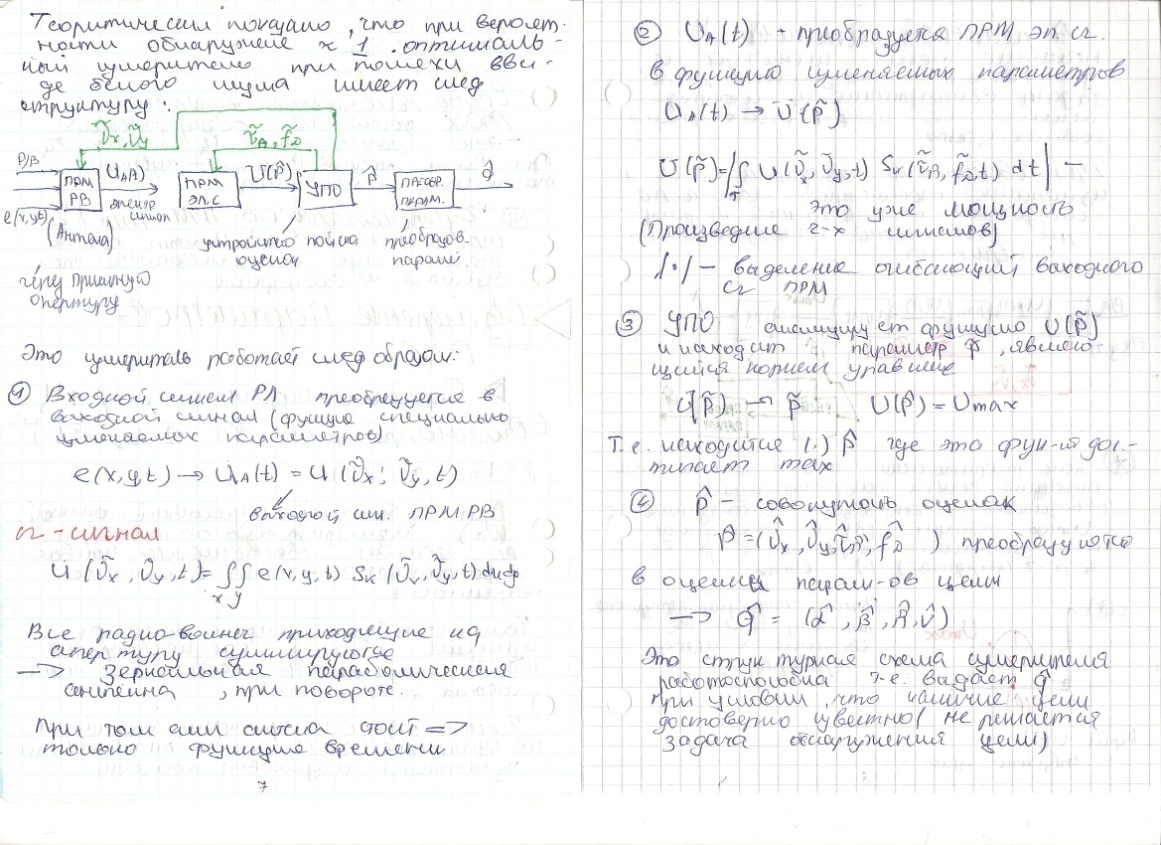 Теоритически показано, что при вероят-
ности обнаружения ≈ 1 оптималь-
ный измеритель при помехи в ви-
де белого шума имеет след
структуру:
ṽx, ṽy
τ̃, f̃д
РВ
ПРМ РВ
UA(t)
электр сигнал
ПРМ ЭЛ.С
U(p̃)
УПО
p̂
ПРЕОБР. ПАРАМ.
q̂
e(x,y,t)
(Антенна)
устройство поиска оценки
преобразов. парам
через приемную
апертуру
Этот измеритель работает след образом:
① Входной сигнал РЛ преобразуется в
выходной сигнал (функцию специально
изменяемых параметров)
e(x,y,t) → UA(t) = U(ṽx; ṽy, t)
выходной сиг. ПРМ РВ
n-сигнал
U(ṽx, ṽy, t) = ∫∫ e(x,y,t) Sx(ṽx, ṽy, t) dx dy
x y
Все радио-волны приходящие на
апертуру суммируются
→ Зеркальная параболическая
антенна, при повороте.
При том сигнал стоит =>
только функция времени
7
② UA(t) - преобразуется ПРМ эл. сг.
в функцию изменяемых параметров
UA(t) → U(p̃)
U(p̃) = |∫ U(ṽx, ṽy, t) Sx(τ̃, f̃д, t) dt| —
T
это уже мощность
(Произведение 2-х сигналов)
|·| — выделение огибающий выходного
сг ПРМ
③ УПО анализирует функцию U(p̃)
и находит параметр p̂, являю-
щийся корнем уравнение
U(p̃) → p̃ U(p̂) = Umax
Т.е. находится (.) p̂ где эта фун-ия дос-
тигает max
④ p̂ - совокупность оценок
p̂ = (v̂x, v̂y, τ̂, f̂д) преобразуются
в оценки парам-ов цели
→ q̂ = (α̂, β̂, R̂, v̂)
Эта структурная схема измерителя
работоспособна т.е. выдает q̂
при условии, что наличие цели
достоверно известно (не решается
задача обнаружения цели)